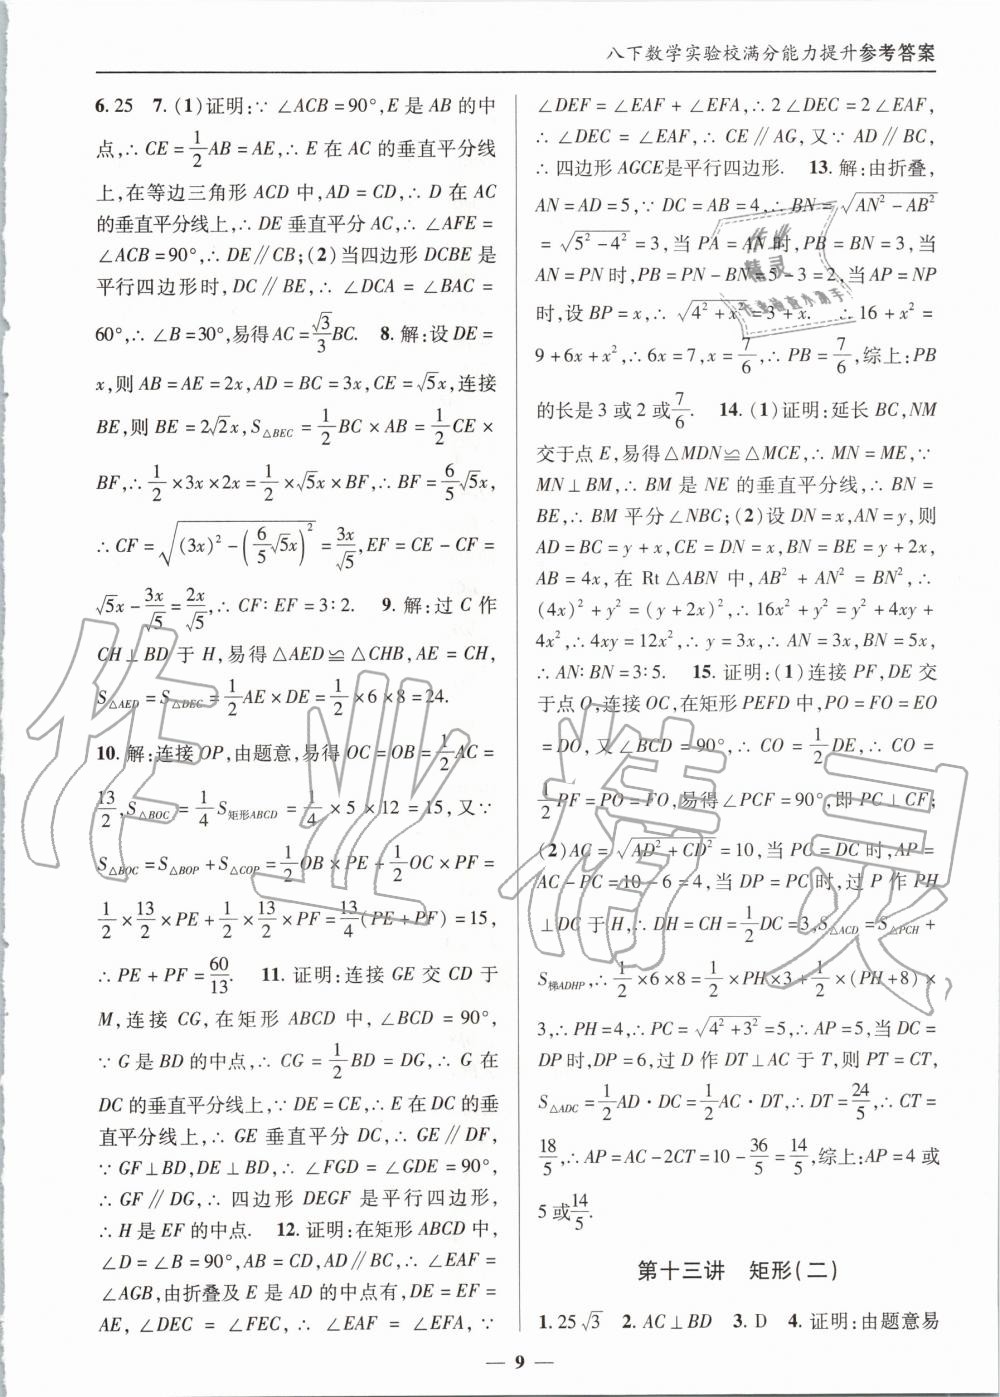 八下数学实验校满分能力提升参考答案
6. 25 7. (1)证明:∵ ∠ACB=90°,E 是 AB 的中
点,∴ CE=1/2AB=AE,∴ E 在 AC 的垂直平分线
上,在等边三角形 ACD 中,AD=CD,∴ D 在 AC
的垂直平分线上,∴ DE 垂直平分 AC,∴ ∠AFE=
∠ACB=90°,∴ DE∥CB;(2)当四边形 DCBE 是
平行四边形时,DC∥BE,∴ ∠DCA=∠BAC=
60°,∴ ∠B=30°,易得 AC=√3/3BC. 8. 解:设 DE=
x,则 AB=AE=2x,AD=BC=3x,CE=√5x,连接
BE,则 BE=2√2x,S△BEC=1/2BC×AB=1/2CE×
BF,∴ 1/2×3x×2x=1/2×√5x×BF,∴ BF=6/5√5x,
∴ CF=√((3x)²-(6/5√5x)²)=3x/√5,EF=CE-CF=
√5x-3x/√5=2x/√5,∴ CF∶EF=3∶2. 9. 解:过 C 作
CH⊥BD 于 H,易得△AED≌△CHB,AE=CH,
S△AED=S△DEC=1/2AE×DE=1/2×6×8=24.
10. 解:连接 OP,由题意,易得 OC=OB=1/2AC=
13/2,S△BOC=1/4S矩形ABCD=1/4×5×12=15,又∵
S△BOC=S△BOP+S△COP=1/2OB×PE+1/2OC×PF=
1/2×13/2×PE+1/2×13/2×PF=13/4(PE+PF)=15,
∴ PE+PF=60/13. 11. 证明:连接 GE 交 CD 于
M,连接 CG,在矩形 ABCD 中,∠BCD=90°,
∵ G 是 BD 的中点,∴ CG=1/2BD=DG,∴ G 在
DC 的垂直平分线上,∵ DE=CE,∴ E 在 DC 的垂
直平分线上,∴ GE 垂直平分 DC,∴ GE∥DF,
∵ GF⊥BD,DE⊥BD,∴ ∠FGD=∠GDE=90°,
∴ GF∥DG,∴ 四边形 DEGF 是平行四边形,
∴ H 是 EF 的中点. 12. 证明:在矩形 ABCD 中,
∠D=∠B=90°,AB=CD,AD∥BC,∴ ∠EAF=
∠AGB,由折叠及 E 是 AD 的中点有,DE=EF=
AE,∠DEC=∠FEC,∴ ∠EAF=∠EFA,∵
∠DEF=∠EAF+∠EFA,∴ 2∠DEC=2∠EAF,
∴ ∠DEC=∠EAF,∴ CE∥AG,又∵ AD∥BC,
∴ 四边形 AGCE是平行四边形. 13. 解:由折叠,
AN=AD=5,∵ DC=AB=4,∴ BN=√(AN²-AB²)
=√(5²-4²)=3,当 PA=AN 时,PB=BN=3,当
AN=PN 时,PB=PN-BN=5-3=2,当AP=NP
时,设 BP=x,∴ √(4²+x²)=3+x. ∴ 16+x²=
9+6x+x²,∴ 6x=7,x=7/6,∴ PB=7/6,综上:PB
的长是 3 或 2 或7/6. 14. (1)证明:延长 BC,NM
交于点 E,易得△MDN≌△MCE,∴ MN=ME,∵
MN⊥BM,∴ BM 是 NE 的垂直平分线,∴ BN=
BE,∴ BM 平分∠NBC;(2)设 DN=x,AN=y,则
AD=BC=y+x,CE=DN=x,BN=BE=y+2x,
AB=4x,在 Rt△ABN 中,AB²+AN²=BN²,∴
(4x)²+y²=(y+2x)²,∴ 16x²+y²=y²+4xy+
4x²,∴ 4xy=12x²,∴ y=3x,∴ AN=3x,BN=5x,
∴ AN∶BN=3∶5. 15. 证明:(1)连接 PF,DE 交
于点 O,连接 OC,在矩形 PEFD 中,PO=FO=EO
=DO,又∠BCD=90°,∴ CO=1/2DE,∴ CO=
1/2PF=PO=FO,易得∠PCF=90°,即 PC⊥CF;
(2)AC=√(AD²+CD²)=10,当 PC=DC 时,AP=
AC-PC=10-6=4,当 DP=PC 时,过 P 作 PH
⊥DC 于 H,∴ DH=CH=1/2DC=3,S△ACD=S△PCH+
S梯ADHP,∴ 1/2×6×8=1/2×PH×3+1/2×(PH+8)×
3,∴ PH=4,∴ PC=√(4²+3²)=5,∴ AP=5,当 DC=
DP时,DP=6,过 D 作 DT⊥AC 于 T,则 PT=CT,
S△ADC=1/2AD·DC=1/2AC·DT,∴ DT=24/5,∴ CT=
18/5,∴ AP=AC-2CT=10-36/5=14/5,综上:AP=4 或
5 或14/5.
第十三讲 矩形(二)
1. 25√3 2. AC⊥BD 3. D 4. 证明:由题意易
— 9 —
作业精灵
作业
精灵
作业检查小助手